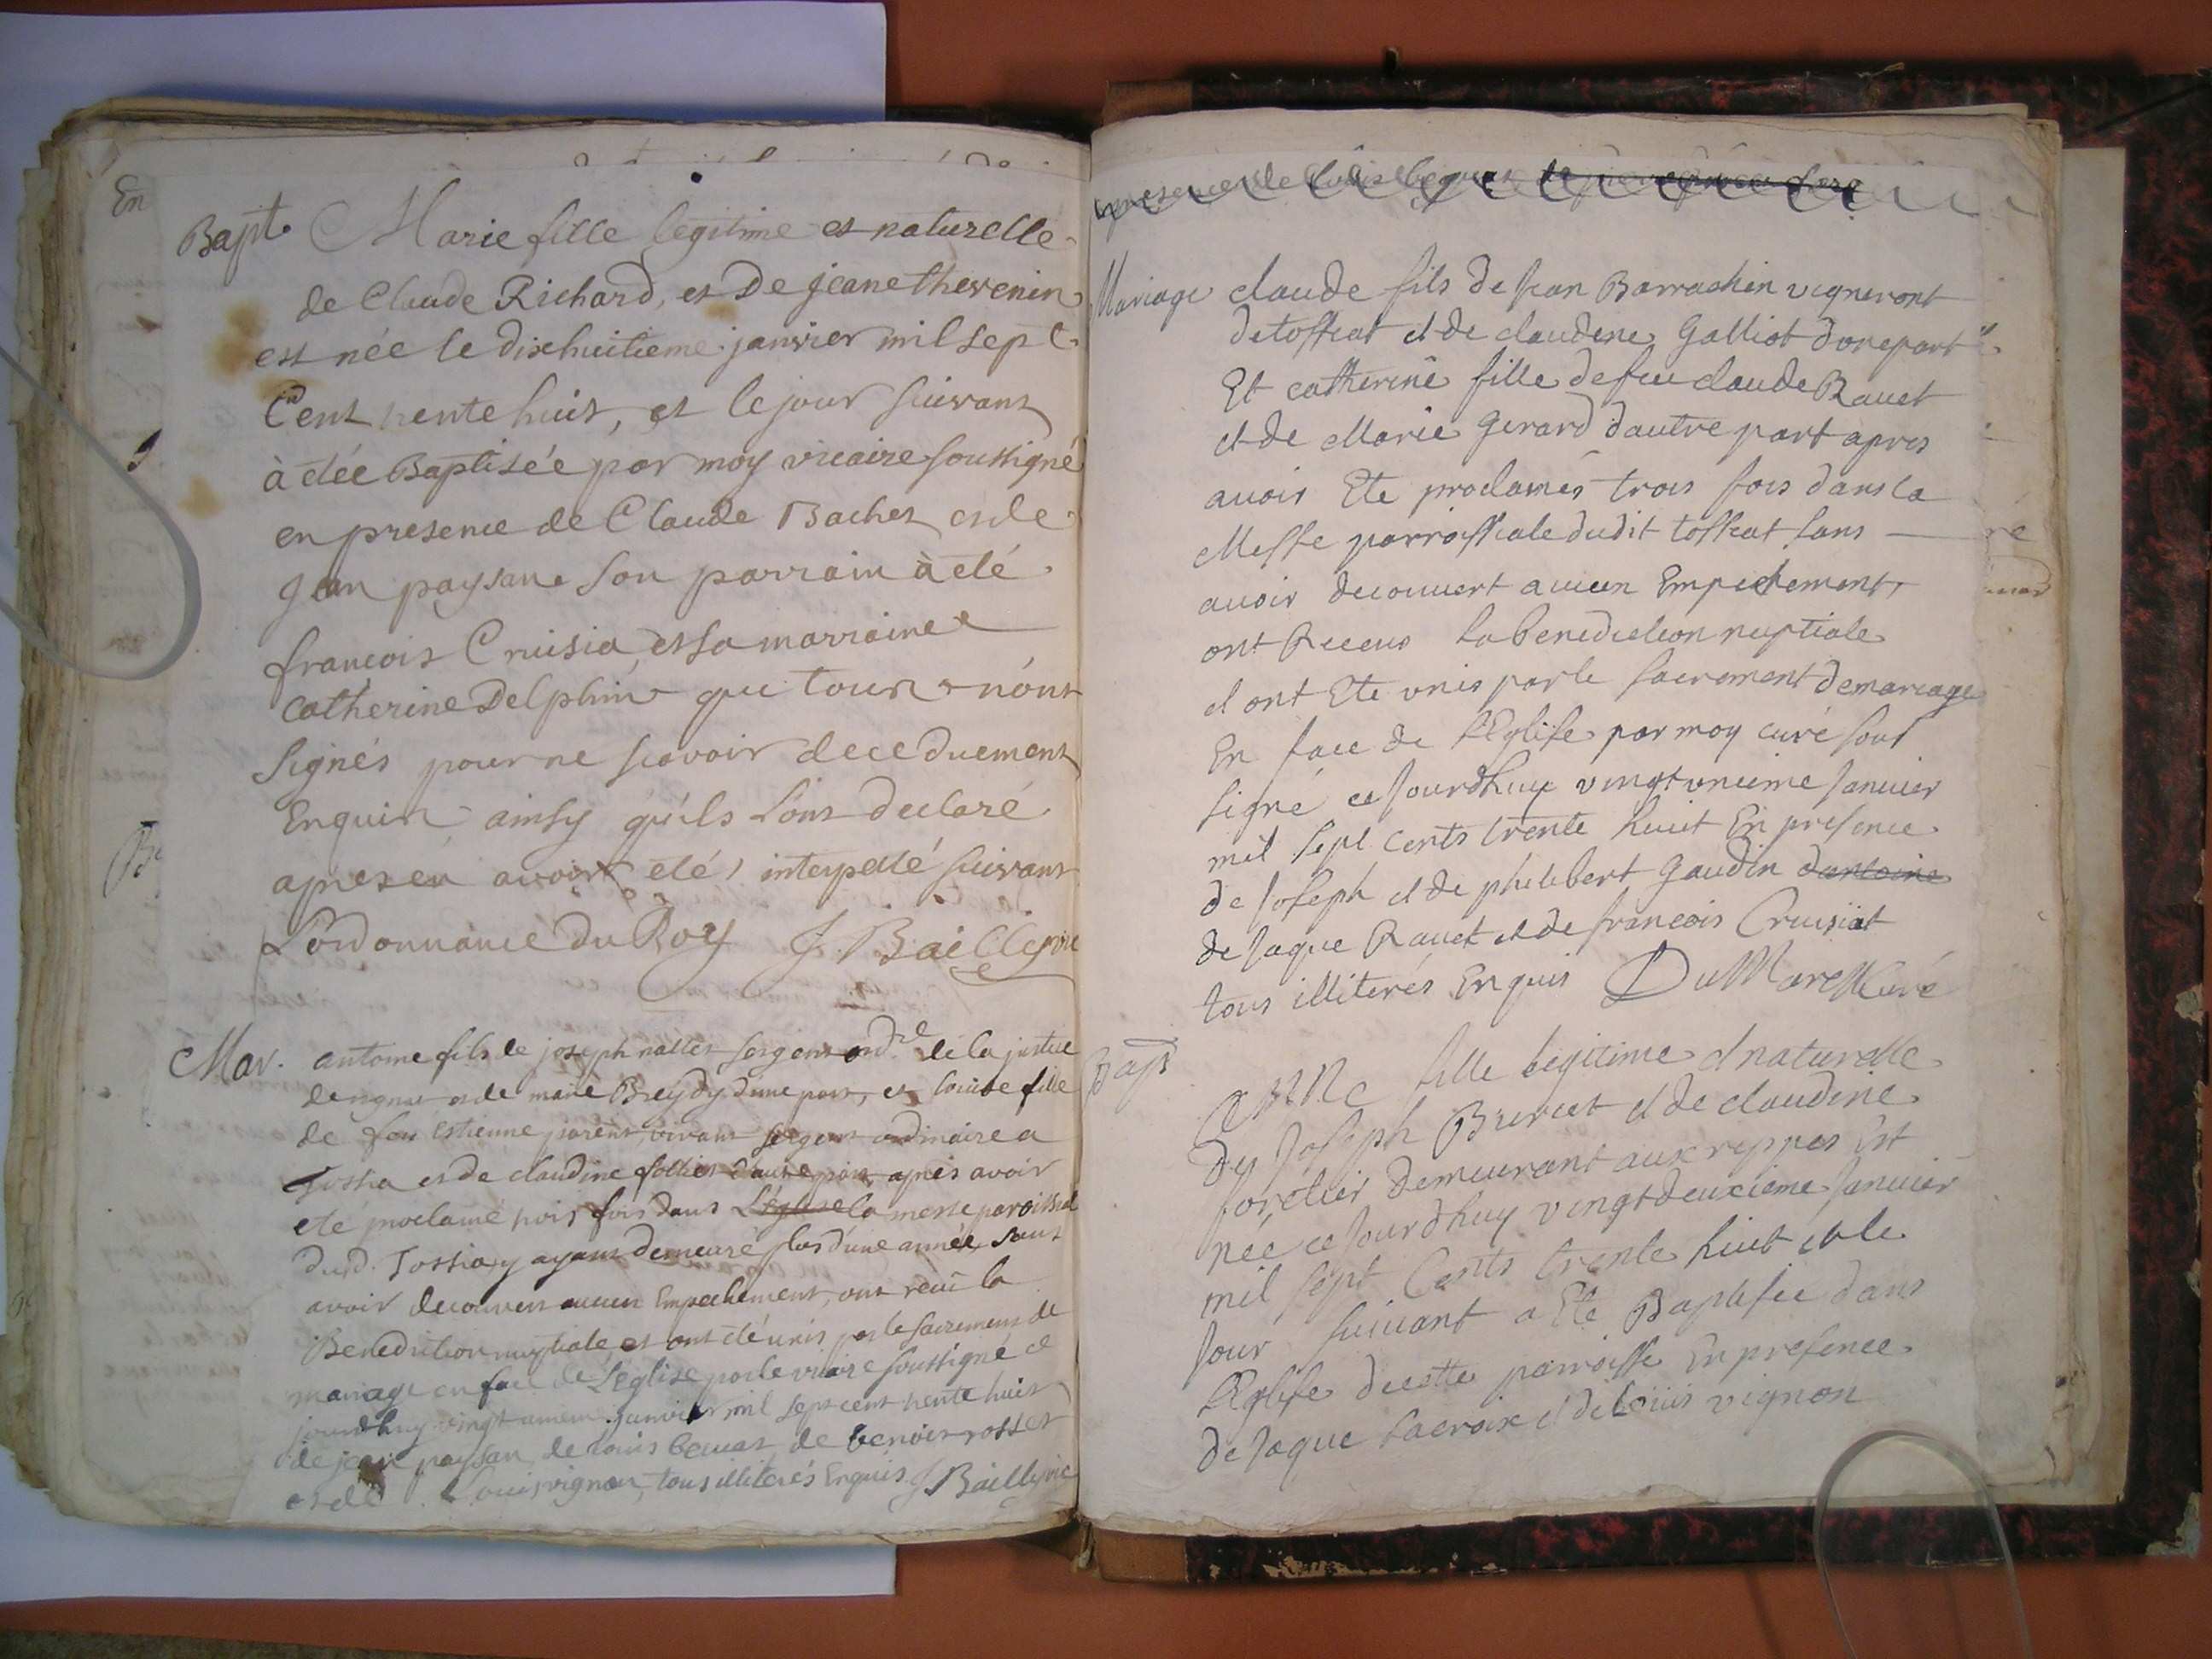 En
Bapt. Marie fille legitime et naturelle
de Claude Richard, et De jeane thevenin
est née le dixhuitieme janvier mil sept
Cent trente huit, et le jour suivant
à étée Baptisée par moy vicaire soussigné
en presence de Claude Bachet et de
jean paysan son parrain à été
francois Cruisia et sa marraine
catherine Delphin que tous n'ont
signés pour ne scavoir de ce duement
Enquis ainsy qu'ils l'ont declaré
apres en avoir été interpellé suivant
L'ordonnance Du Roy J. Bailly vic
Mar. antoine fils de joseph nallet sergent ord.re de la justice
de et de marie Breydy d'une part, et louise fille
de feu estienne parent, vivant sergent ordinaire a
Tossia et de claudine follier d'autre part, apres avoir
eté proclamé trois fois dans L'eglise la messe paroissial
dud. Tossia, y ayant demeuré plus d'une année, sans
avoir decouvert aucun Empechement, ont recû la
Benediction nuptiale et ont été unis par le sacrement de
mariage en face de L'eglise par le vicaire soussigné ce
jourdhuy vingt janvier mil sept cent trente huit
de jean paysan, de louis de benoit rosset
et de Louis vignon, tous illiterés Enquis. J Bailly vic
presence de Louis
Mariage claude fils de Jean Barrachin vigneront
de tossiat et de claudine Galliot d'une part
Et catherine fille de feu claude Ravet
et de Marie Gerard d'autre part apres
avoir Ete proclamés trois fois dans la
Messe parroissiale dudit tossiat sans
avoir decouvert aucun Empechement,
ont Receus la benediction nuptiale
et ont Ete unis par le sacrement de mariage
En face de l'Eglise par moy curé sous
signé ce Jourdhuy vingt unieme Janvier
mil sept cents trente huit En presence
de Joseph et de philibert Gaudin d'antoine
de Jaque Ravet et de francois Cruisiat
tous illiterés Enquis DuMarest Curé
Bapt
Anne fille legitime et naturelle
Dy Joseph Brevet et de claudine
foretier demeurant aux rippes Est
née ce Jourdhuy vingt deuxieme Janvier
mil sept Cents trente huit et le
Jour suivant a Ete Baptisée dans
l'Eglise de cette parroisse En presence
de Jaque Lacroix et de Louis vignon